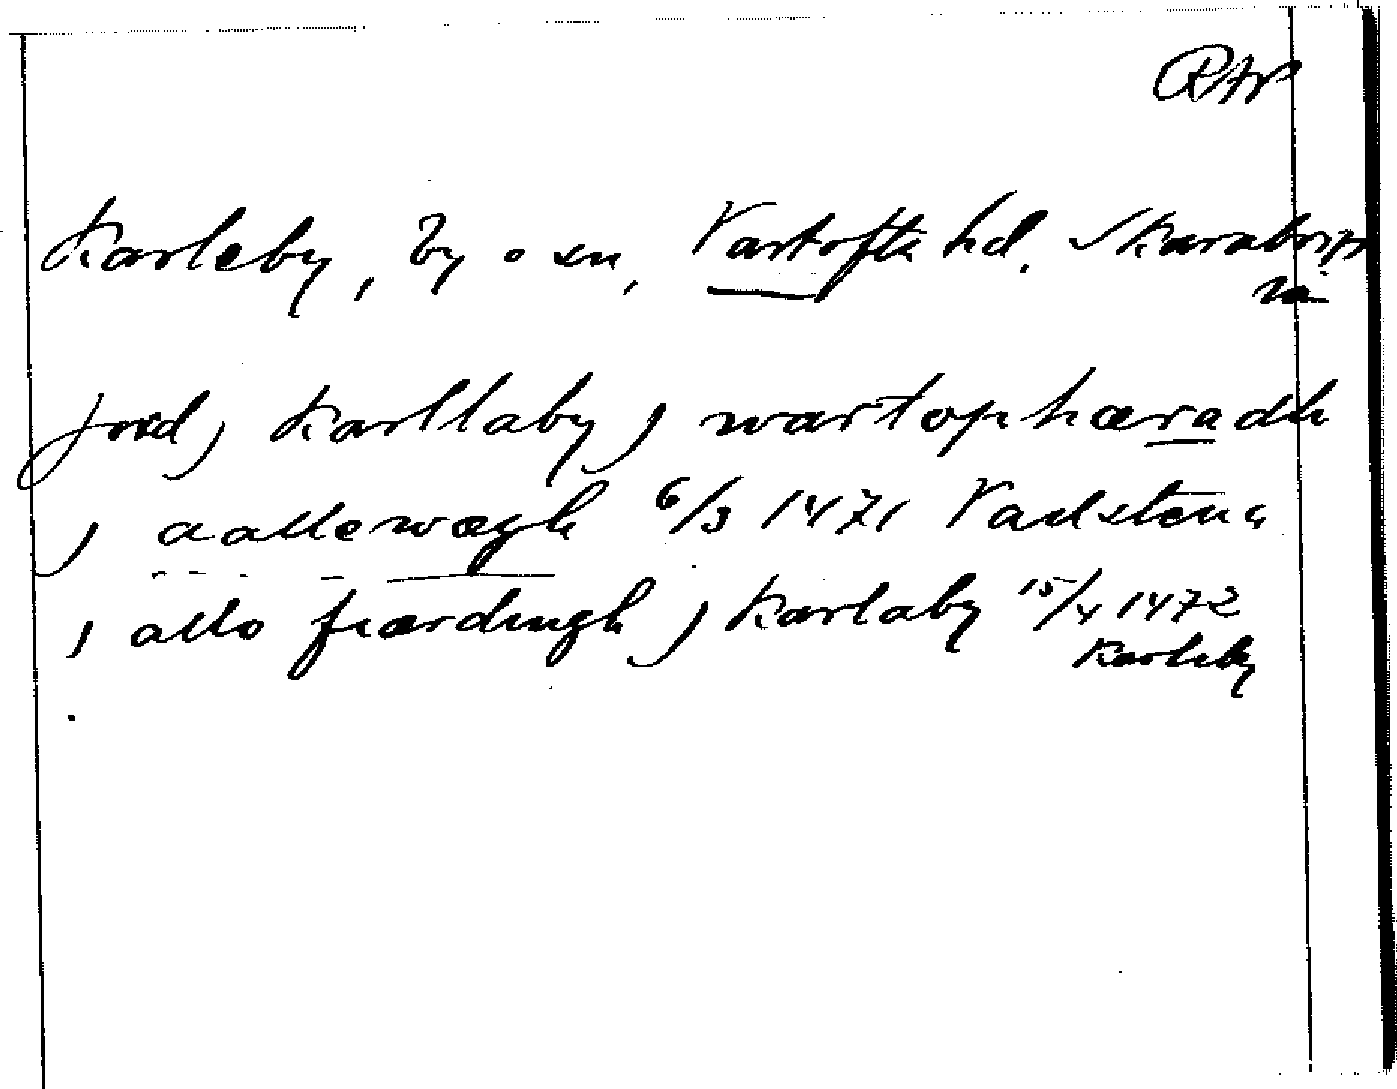 RAP
Karleby, by o sn, Vartofta hd. Skaraborgs
län
jord j Karllaby j wartophæradh
j aallewægh 6/3 1471 Vadstena
j allo fiærdingh j Karlaby 15/4 1472
Karleby